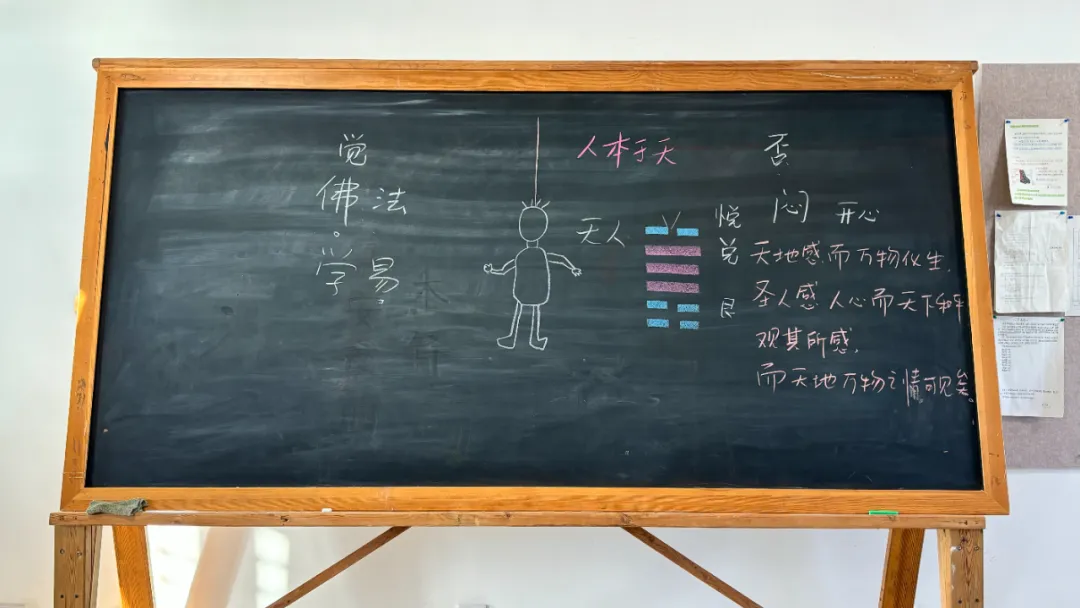 觉
佛法
学易
人本于天
天人
悦
兑
艮
否
闷 开心
天地感而万物化生.
圣人感人心而天下和平
观其所感,
而天地万物之情可见矣。